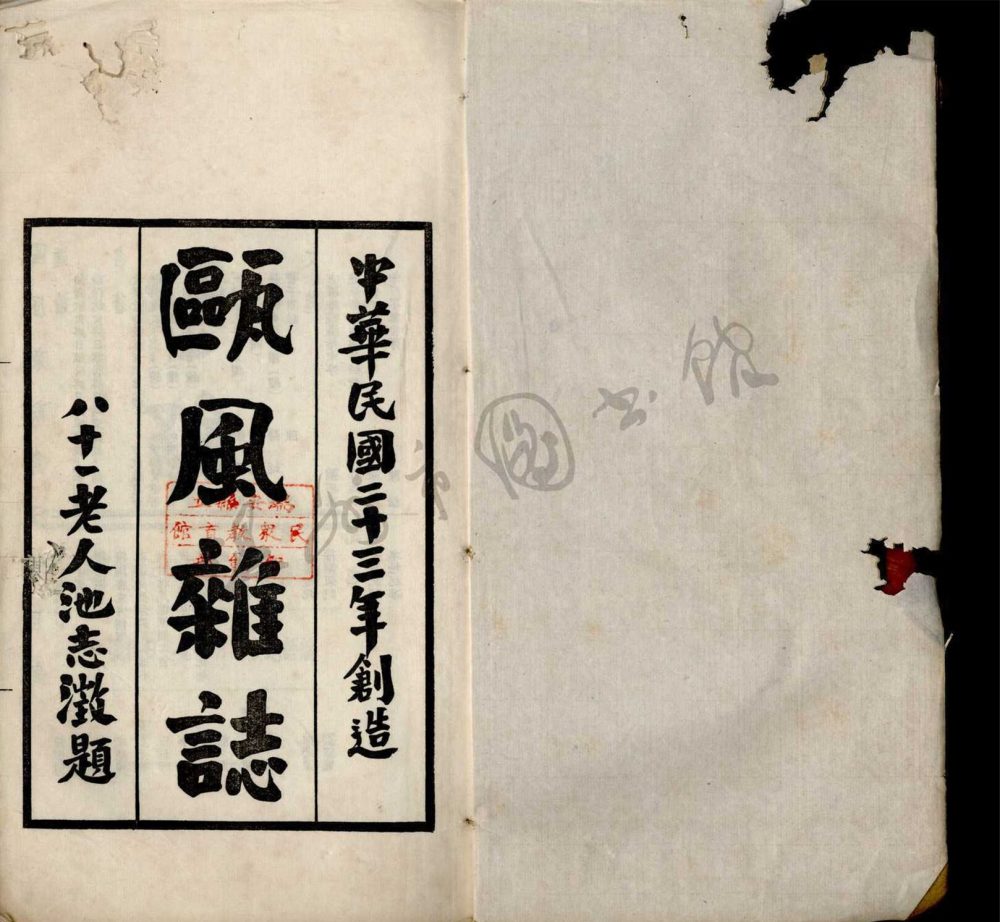 中華民國二十三年創造
甌風雜誌
八十一老人池志澂題
民衆教育館